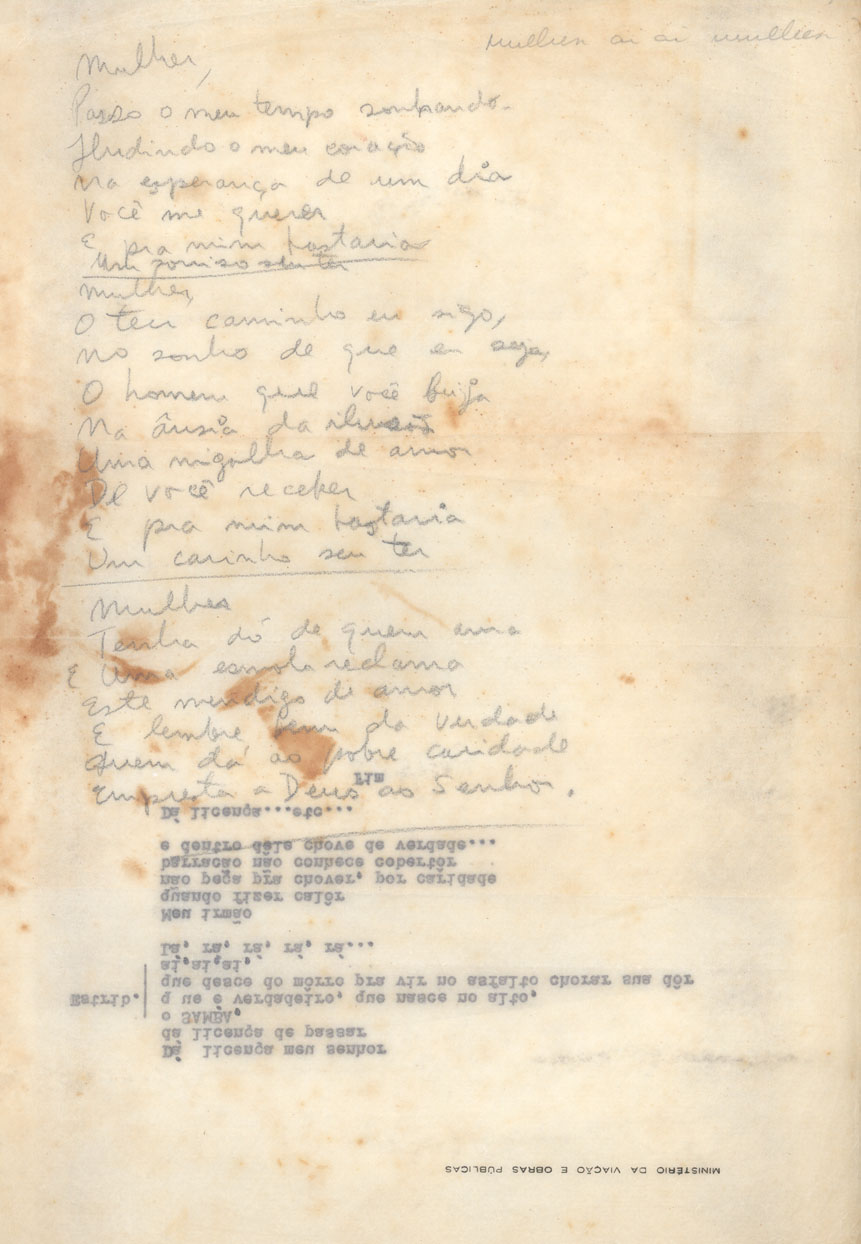 Mulher ai ai mulher
Mulher,
Passo o meu tempo sonhando
Iludindo o meu coração
Na esperança de um dia
Você me querer
E pra mim bastaria
Um sorriso seu ter
Mulher,
O teu caminho eu sigo,
No sonho de que eu seja,
O homem que você beija
Na ânsia da ilusão
Uma migalha de amor
De você receber
E pra mim bastaria
Um carinho seu ter
Mulher
Tenha dó de quem ama
E Uma esmola reclama
Este mendigo de amor
E lembre bem da verdade
Quem dá ao pobre caridade
Empresta a Deus ao Senhor.
Fim
Dá licença...etc...
e dentro dêle chove de verdade...
barracao não conhece cobertôr
nao peça pra chover, por caridade
quando fizer calôr
Meu irmão
La, ra, ra, ra, ra...
ai,ai,ai,
que desce do môrro pra vir no asfalto chorar sua dôr
Estrib. q ue e verdadeiro, que nasce no alto,
o SAMBA,
da licença de passar
Dá licença meu senhor
MINISTÉRIO DA VIAÇÃO E OBRAS PÚBLICAS